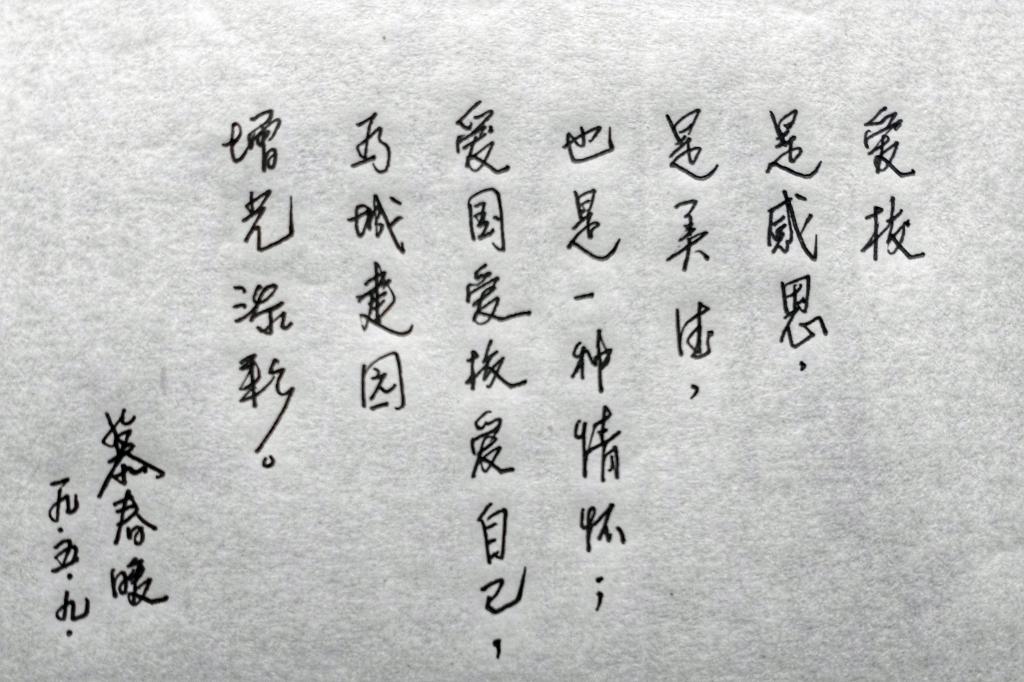 爱校
是感恩，
是美德，
也是一种情怀；
爱国爱校爱自己，
为城建园
增光添彩。
慕春暖
一九.五.九.